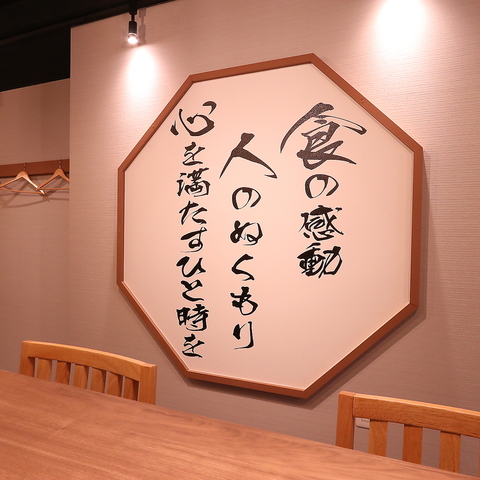 食の感動
人のぬくもり
心を満たすひと時を